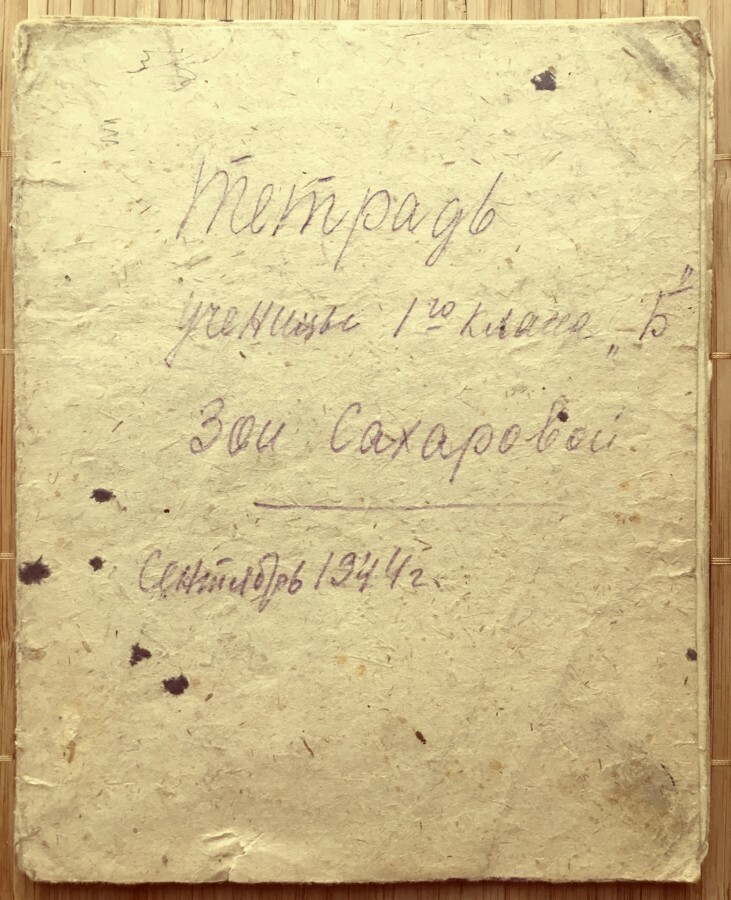 Тетрадь
ученицы 1го класса „Б"
Зои Сахаровой.
Сентябрь 1944 г.